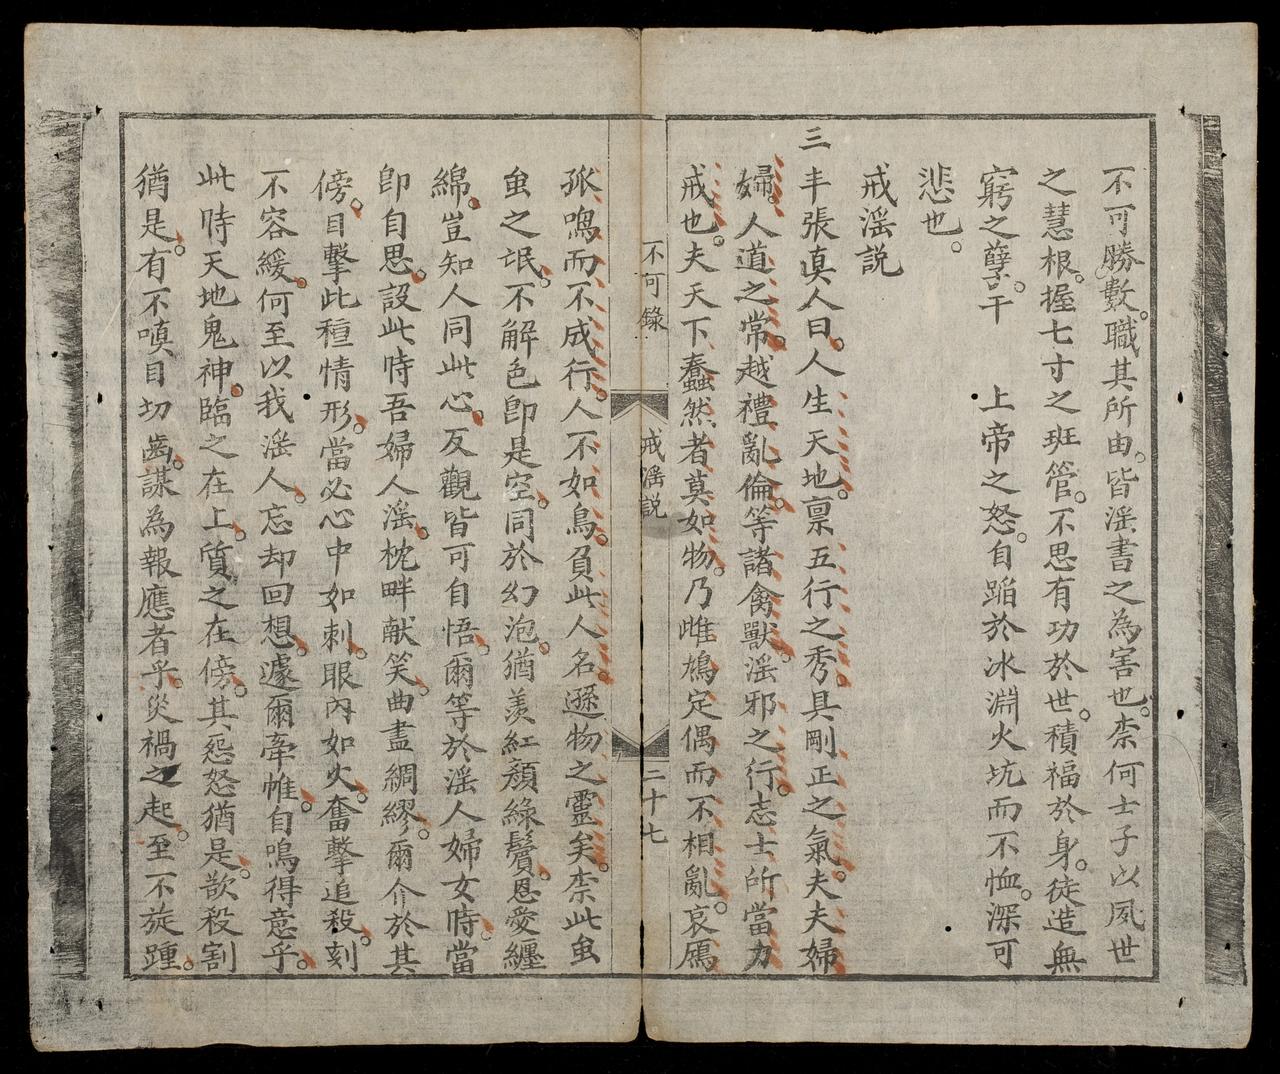 不可勝數。職其所由。皆滛書之為害也。柰何士子以夙世
之慧根。握七寸之班管。不思有功於世。積福於身。徒造無
窮之孽。干　上帝之怒。自蹈於冰淵火坑而不恤。深可
悲也。
戒滛説
三丰張真人曰。人生天地。禀五行之秀。具剛正之氣。夫夫婦
婦。人道之常。越禮亂倫。等諸禽獸。滛邪之行。志士所當力
戒也。夫天下蠢然者莫如物。乃雎鳩定偶而不相亂。哀鴈
不可錄
戒滛説
二十七
孤鳴而不成行。人不如鳥。負此人名。遜物之靈矣。柰此蚩
蚩之氓。不解色即是空。同於幻泡。猶羨紅顏綠鬢。恩愛纏
綿。豈知人同此心。反觀皆可自悟。爾等於滛人婦女時。當
即自思。設此時吾婦人滛。枕畔献笑。曲盡綢繆。爾介於其
傍。目擊此種情形。當必心中如刺。眼內如火。奮擊追殺。刻
不容緩。何至以我滛人。忘却回想。遽爾牽帷。自鳴得意乎。
此時天地鬼神。臨之在上。質之在傍。其惡怒猶是。歆殺割
猶是。有不嗔目切齒。謀為報應者乎。災禍之起。至不旋踵。